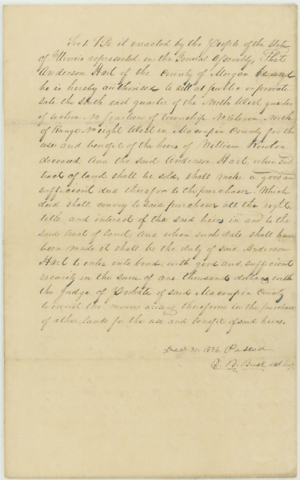 Sec 1 Be it enacted by the People of the State
of Illinois represented in the General Assembly, That
Anderson Hart of the County of Morgan be and
he is hereby authorised to sell at public or private
sale the South east quarter of the North West quarter
of section No fourteen of township No fifteen North
of Range No eight West in Macoupin County for the
use and benefit of the heirs of William
deceased And the said Anderson Hart when said
tract of land shall be sold, shall make a good and
sufficient deed therefor to the purchaser, Which
deed shall convey to said purchaser all the right
title and interest of the said heirs in and to the
said tract of land, And when such sale shall have
been made it shall be the duty of said Anderson
Hart to enter into bond with good and sufficient
security in the sum of one thousand dollars with
the Judge of Probate of said Macoupin County
to invest the money arising therefrom in the purchase
of other lands for the use and benefit of said heirs.
Decr 30. 1836 Passed